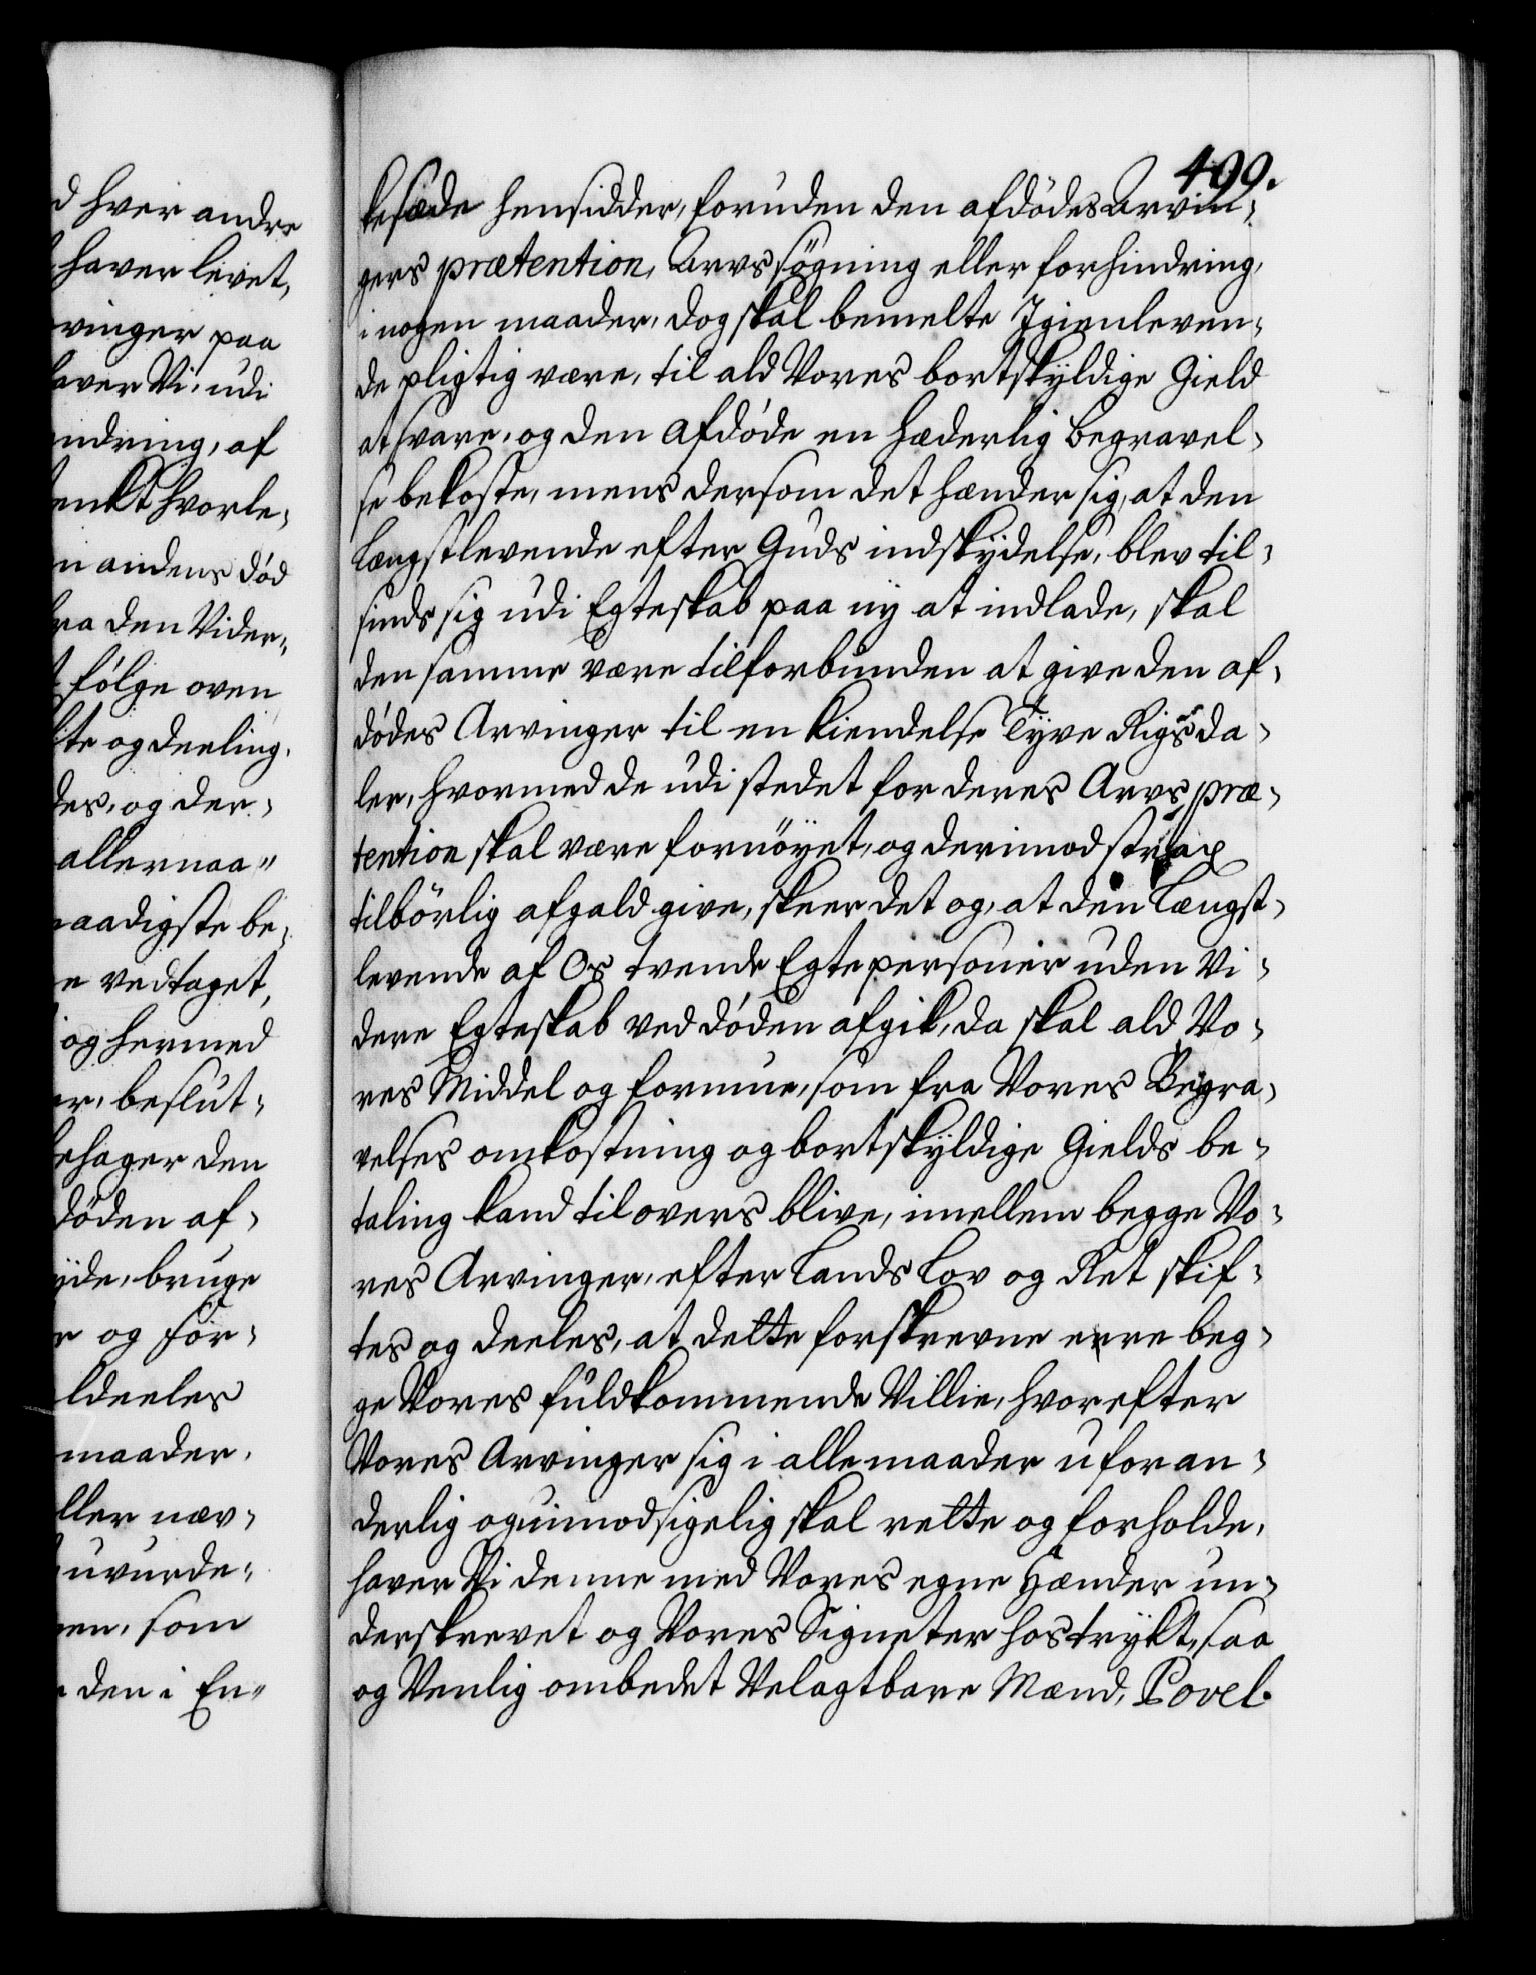 d hver andre
haver levet,
vinger paa
aver Vi, udi
ndring, af
enkt hvorle,
n andens död
ra den Vider,
följe oven
te og deeling,
des, og der,
allernaa"
naadigste be,
e vedtaget,
og hermed
er, beslut,
ehager den
döden af,
yde, bruge
r og for,
ldeeles
maader,
ller næv,
uvurde,
en, som
den i En"
499.
kesæde hensidder, foruden den afdödes Arvin,
gers prætention, Arvs søgning eller forhindring,
i nogen maader, dog skal bemelte Igienleven,
de pligtig være, til ald Vores bortskyldige Gield
at svare, og den afdöde en hæderlig begravel,
se bekoste, mens dersom det hænder sig, at den
Længstlevende efter Guds indskydelse, blev til,
sinds sig udi Egteskab paa ny at indlade, skal
den samme være tilforbunden at give den af,
dödes Arvinger til en kiendelse Tyve Rigsda,
ler, hvormed de udi stedet for deres Arvs præ,
tention skal være fornöyet, og derimod strax
tilbörlig afgald give, skeer det og, at den Længst,
levende af Os tvende Egtepersoner uden Vi,
dere Egteskab ved döden afgik, da skal ald Vo,
res Middel og formue, som fra Vores Begra,
velses omkostning og bortskyldige Gields be,
taling kand til overs blive, imellem begge Vo,
res Arvinger, efter Lands Lov og Ret skif,
tes og deeles, at dette forskrevne ere beg,
ge Vores fuldkommende Villie, hvorefter
Vores Arvinger sig i alle maader uforan,
derlig og uimodsigelig skal rette og forholde,
haver Vi denne med Vores egne Hænder un,
derskrevet og Vores Signeter hostrykt, saa
og Venlig ombedet Velagtbare Mænd, Povel